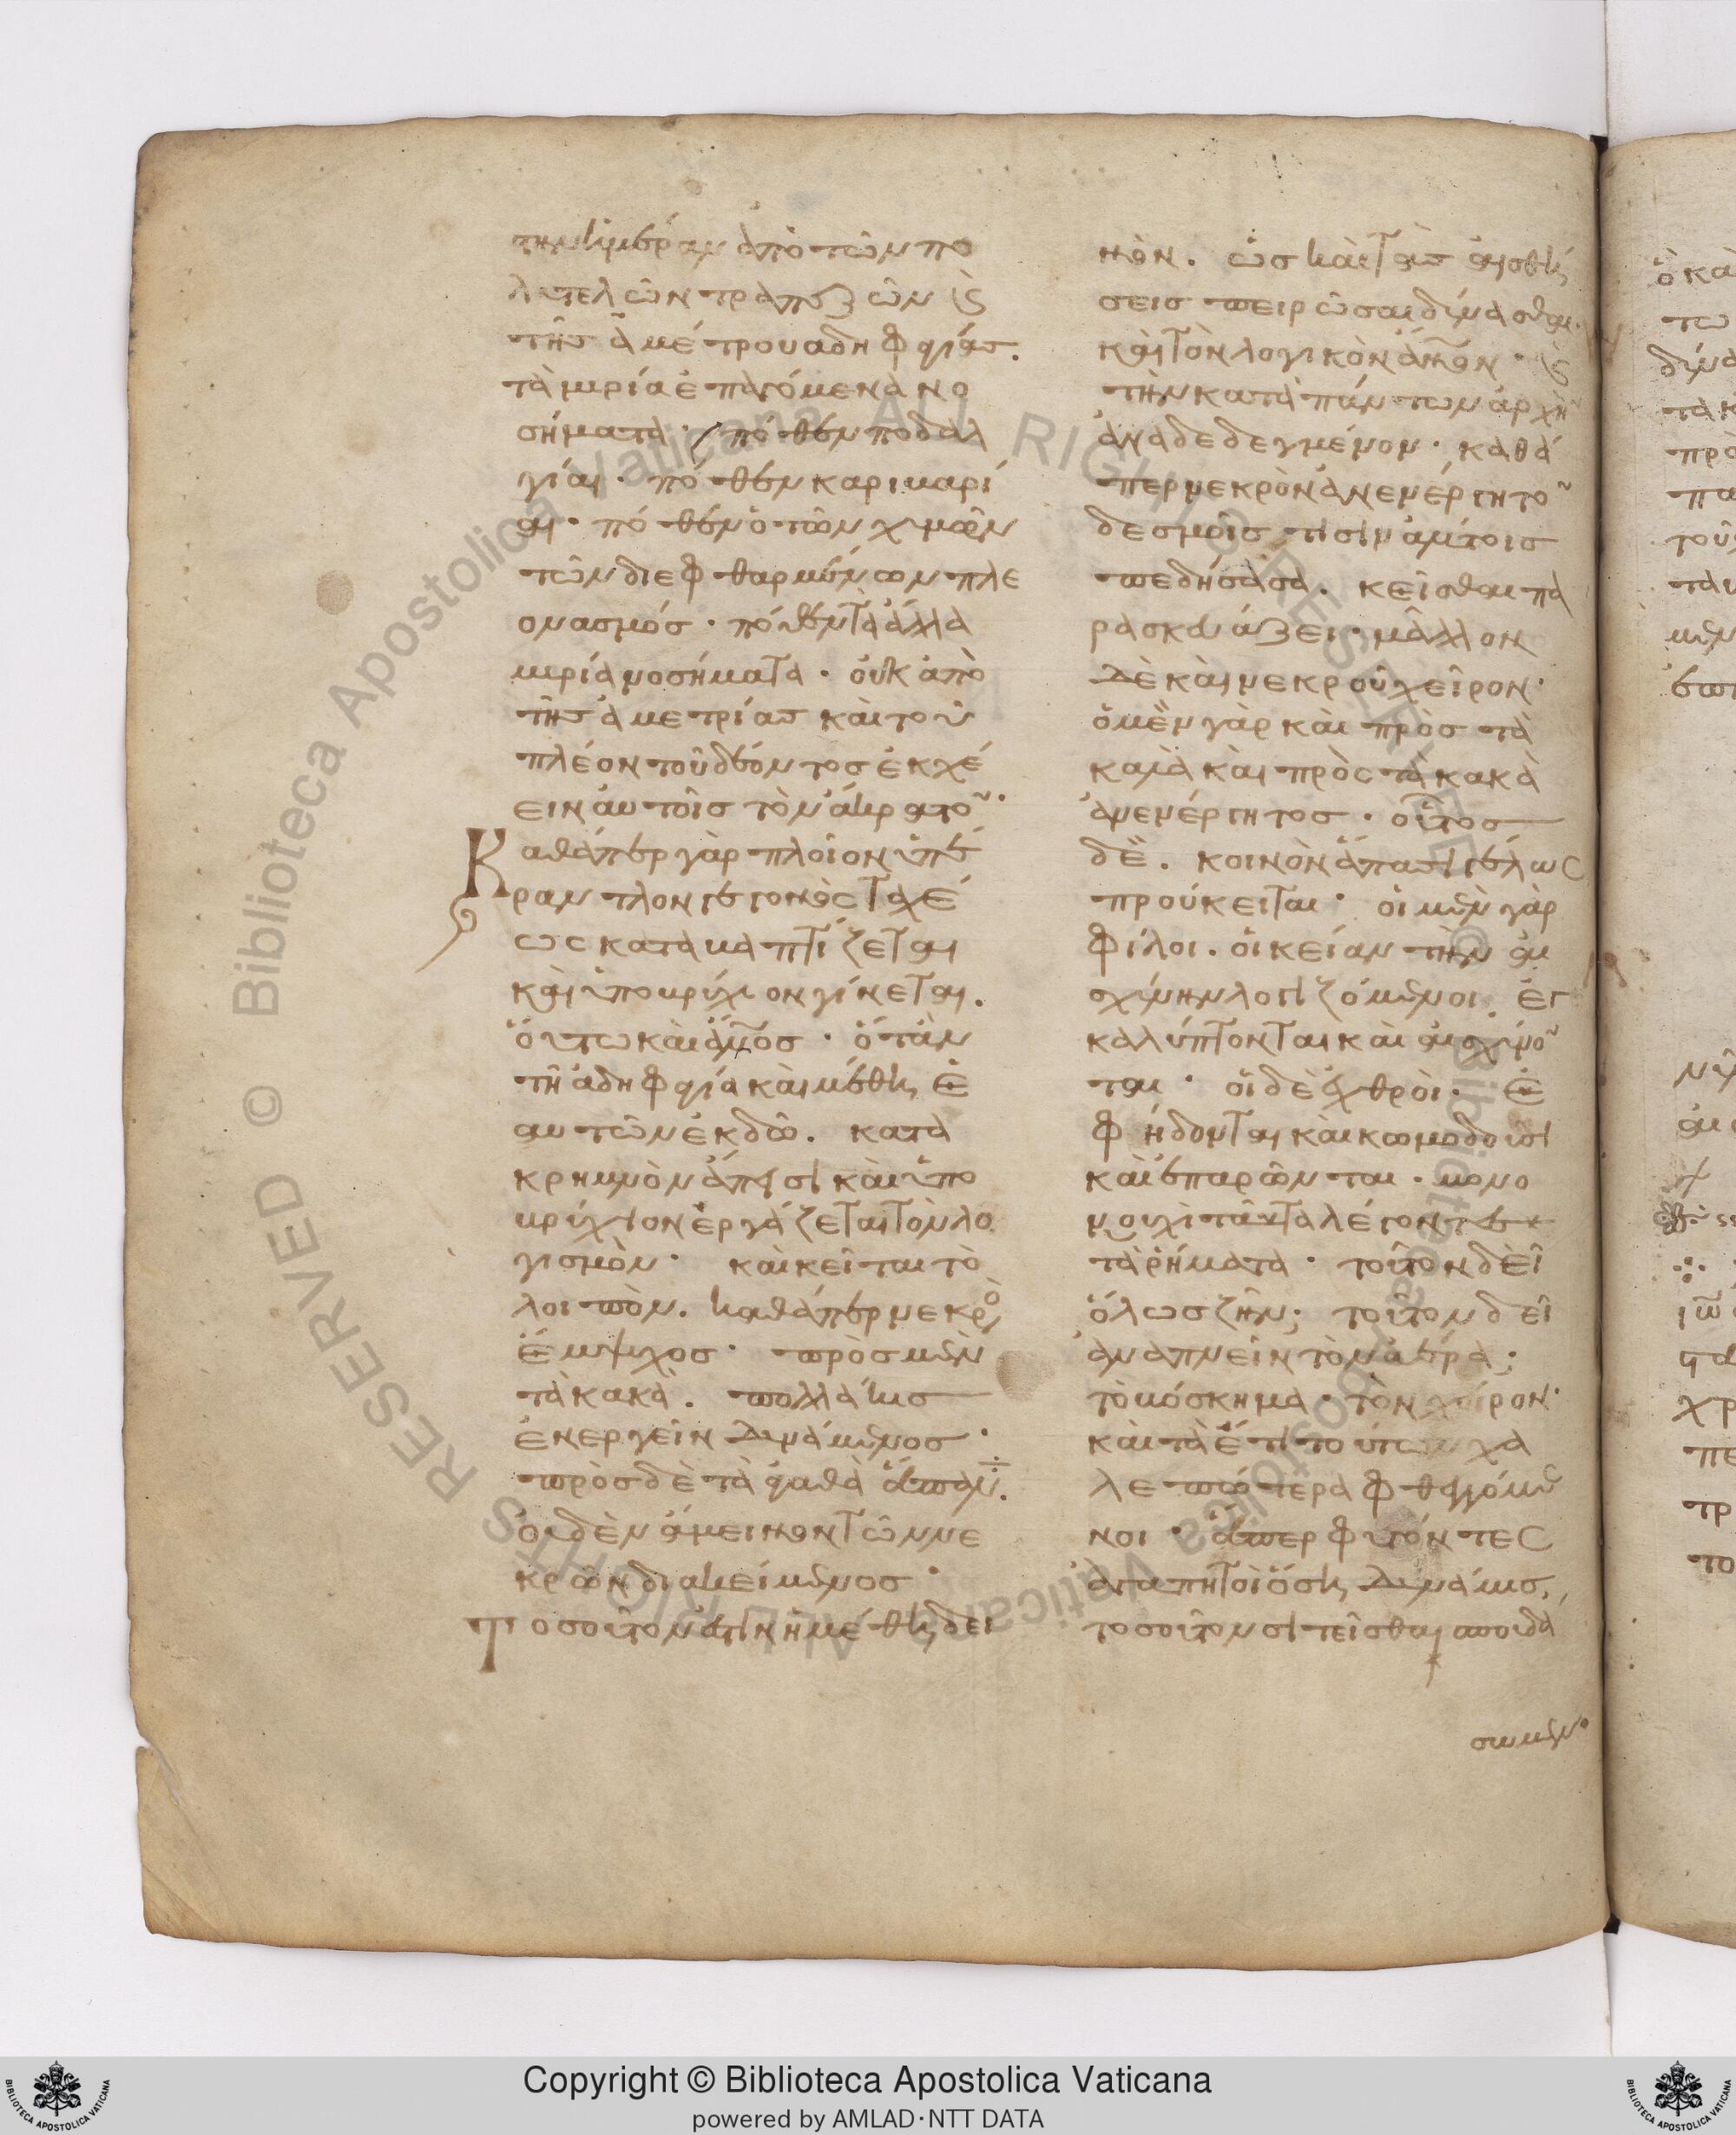 την ἡμέραν ἀπὸ τῶν πο
λυτελῶν τραπεζῶν ϗ
τῆς ἀμέτρου ἀδηφαγίας.
τὰ μυρία ἐπαγόμενα νο
σήματα· πόθεν ποδαλ
γίαι· πόθεν καριβαρί
αι· πόθεν ὁ τῶν χυμῶν
τῶν διεφθαρμένων πλε
ονασμός· πόθεν τὰ ἄλλα
μυρία νοσήματα· οὐκ ἀπὸ
τῆς ἀμετρίας καὶ τοῦ
πλέον τοῦ δέοντος ἐκχέ
ειν αὐτοῖς τὸν ἄκρατον·
Καθάπερ γὰρ πλοῖον ὑπέ
ραντλον γεγονὸς ταχέ
ως καταβαπτίζεται
καὶ ὑποβρύχιον γίνεται.
οὕτω καὶ ἄνος· ὅταν
τῆ ἀδηφαγία καὶ μέθη ἑ
αυτὸν ἐκδῶ. κατὰ
κρημνὸν ἄπεισι καὶ ὑπο
βρύχιον ἐργάζεται τὸν λο
γισμὸν· καὶ κεῖται τὸ
λοιπὸν. καθάπερ νεκρὸ
ἔμψυχος· πρὸς μὲν
τὰ κακὰ. πολλάκις
ἐνεργεῖν δυνάμενος·
πρὸς δὲ τὰ ἀγαθὰ
οὐδὲν ἄμεινον τῶν νε
κρῶν διακείμενος·
Τοσοῦτον ἐστὶν ἡ μέθη δει
νὸν. ὡς καὶ τὰς αἰσθή
σεις πειρῶσαι δύνασθαι.
καὶ τὸν λογικὸν ἄνον· ϗ
τὴν κατὰ πάντων ἀρχὴν
ἀναδεδεγμένον· καθά
περ νεκρὸν ἀνενέργητον
δεσμοῖς τισὶν ἀλύτοις
πεδήσασα. κεῖσθαι πα
ρασκευάζει· μᾶλλον
δὲ καὶ νεκροῦ χεῖρον·
ὁ μὲν γὰρ καὶ πρὸς τὰ
καλὰ καὶ πρὸς τὰ κακὰ
ἀνενέργητος· οὗτος
δὲ. κοινὸν ἅπασι γέλως
πρόκειται· οἱ μὲν γὰρ
φίλοι. οἰκείαν τὴν αἰ
σχύνην λογιζόμενοι. ἐγ
καλύπτονται καὶ αἰσχύνον
ται· οἱ δὲ ἐχθροὶ. ἐ
φήδονται καὶ κωμωδοῦσι
καὶ ἐπαρῶνται· μονο
νουχὶ ταῦτα λέγοντες
τὰ ῥήματα· τοῦτον δεῖ
ὅλως ζῆν; τοῦτον δεῖ
ἀναπνεῖν τὸν ἀέρα;
τὸ βόσκημα· τὸν χοῖρον·
καὶ τὰ ἔτι τούτων χα
λεπώτερα φθεγγόμε
νοι· ἅπερ φυγόντες
ἀγαπητοὶ ὅση δύναμις,
τοσοῦτον σιτεῖσθαι σπουδά
σωμεν·
Copyright © Biblioteca Apostolica Vaticana
powered by AMLAD·NTT DATA